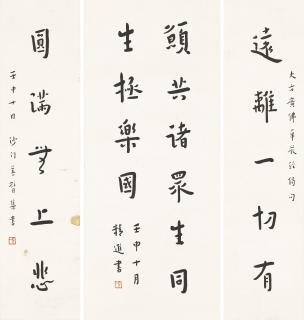 大方廣佛華嚴經偈句
遠離一切有
願共諸眾生同
生極樂國
壬申十月
精進書
圓滿無上悲
壬申十月